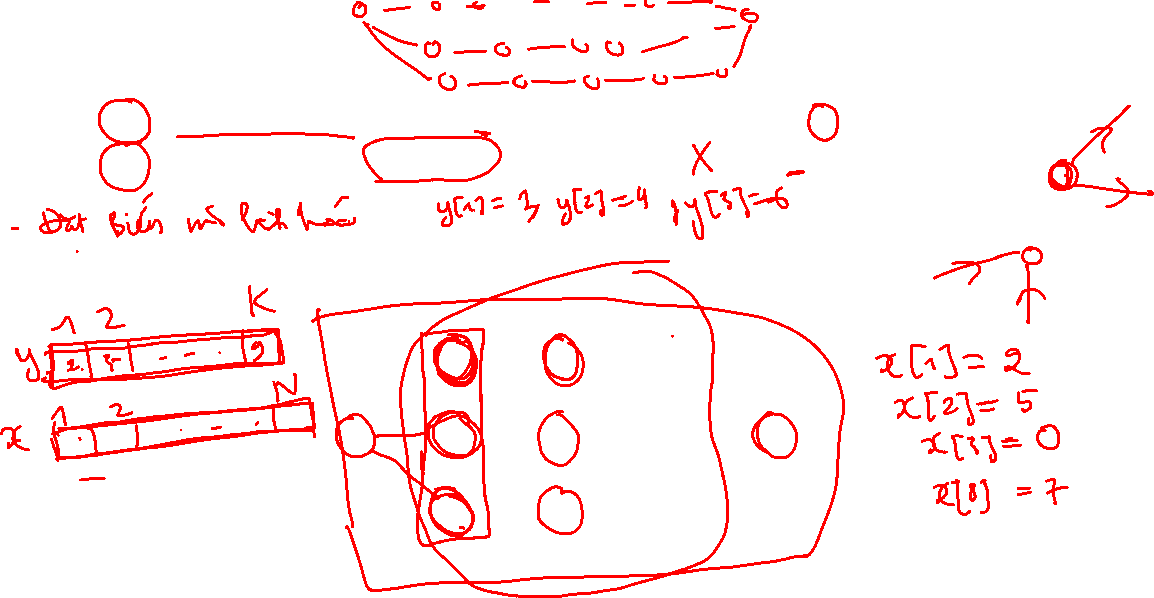 X
- Đặt biến mô hình hoá y[1] = 3, y[2] = 4, y[3] = 6
1 2 K
y 2 5 - - . 9
1 2 N
x . - - .
x[1] = 2
x[2] = 5
x[3] = 0
x[8] = 7